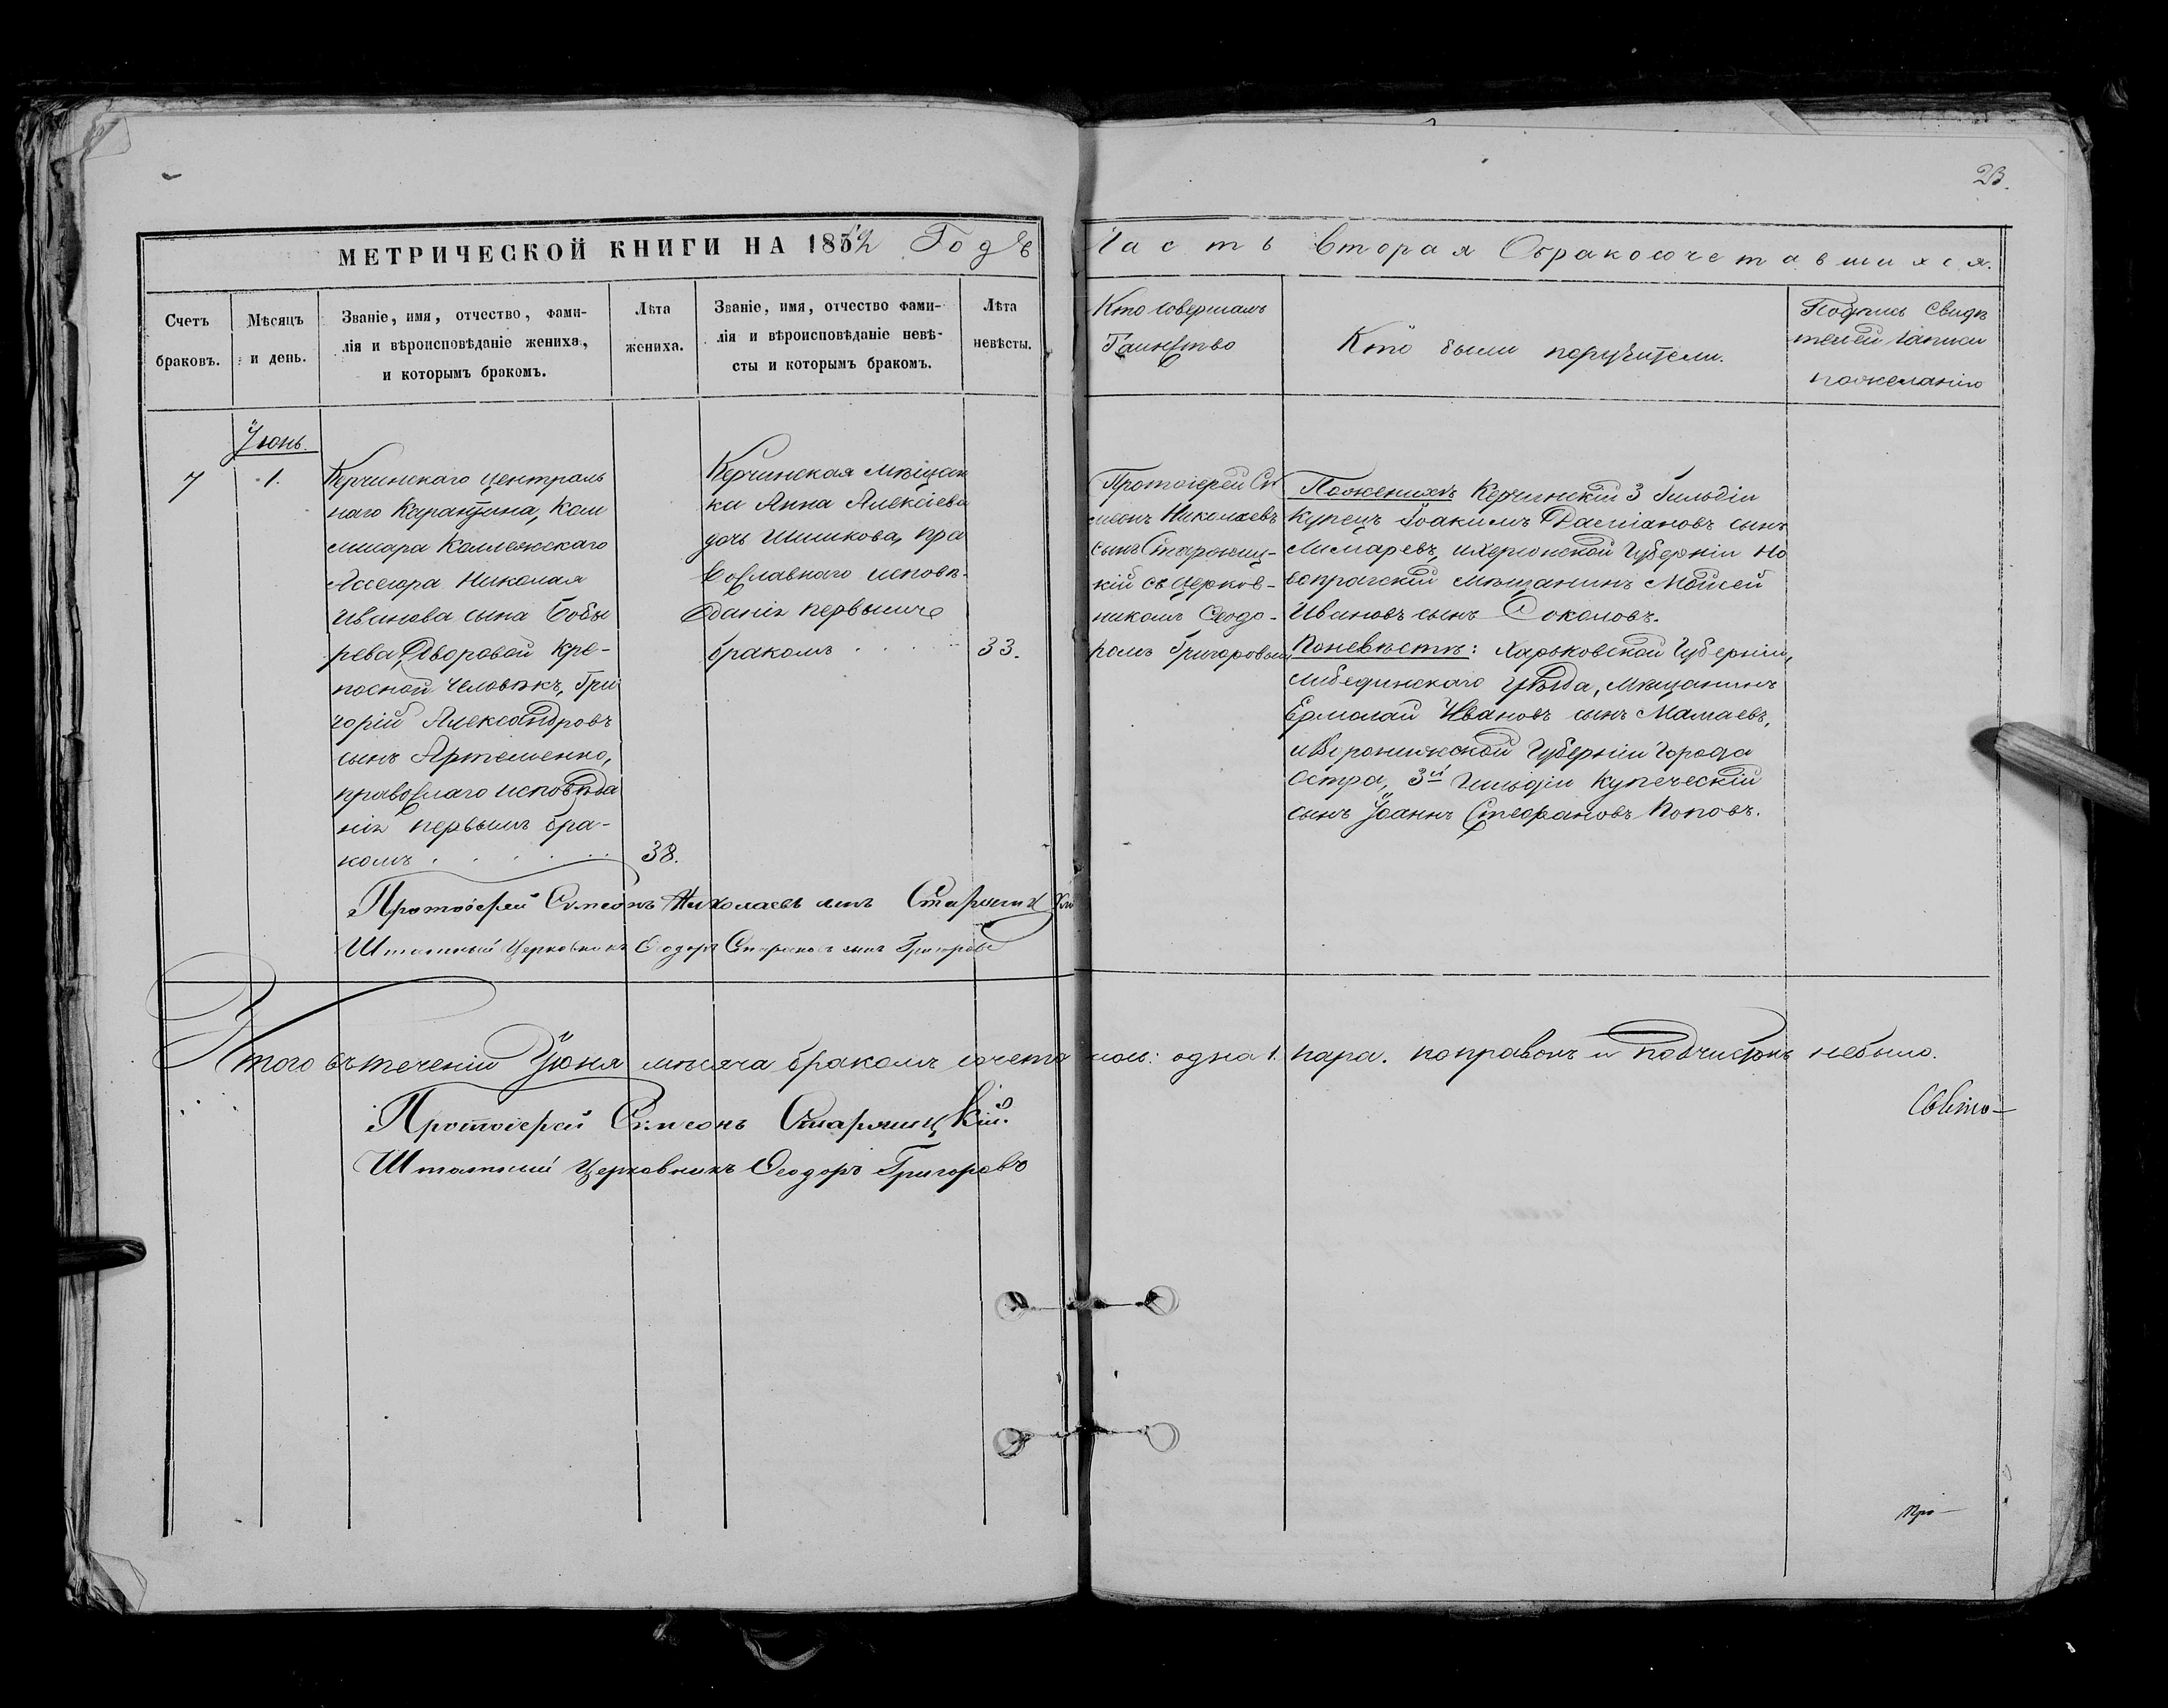 23.
МЕТРИЧЕСКОЙ КНИГИ НА 1852 Годъ
Часть Вторая О бракосочетавшихся.
Счетъ
браковъ.
Мѣсяцъ
и день.
Званіе, имя, отчество, фами-
лія и вѣроисповѣданіе жениха,
и которымъ бракомъ.
Лѣта
жениха.
Званіе, имя, отчество фами-
лія и вѣроисповѣданіе невѣ-
сты и которымъ бракомъ.
Лѣта
невѣсты.
Кто совершалъ
Таинство
Кто были поручители.
Подпись свидѣ
телей записи
по желанію
Іюнь.
7
1.
Керчинскаго централь
наго Карантина, Ком
мисара Коллежскаго
Ассесора Николая
Иванова сына Бобы
рева, Дворовой Кре-
посной человѣкъ, Гри
горій Александровъ
сынъ Артеменко,
православнаго исповѣда
нія первымъ бра-
комъ . . . . .
38.
Керчинская мѣщан
ка Анна Алексіева
дочь Шишкова, пра
вославнаго исповѣ-
данія первымъ
бракомъ . . . .
33.
Протоіерей Си
меонъ Николаевъ
сынъ Старониц-
кій съ Церков-
никомъ Ѳеодо-
ромъ Григоровым
По женихѣ Керчинскій 3 Гильдіи
Купецъ Іоакимъ Даміановъ сынъ
Лимаревъ, и Херсонской Губерніи Но
вопрагскій мѣщанинъ Моисей
Ивановъ сынъ Соколовъ.
По невѣстѣ: Харьковской Губерніи,
Лебединскаго уѣзда, мѣщанинъ
Ермолай Ивановъ сынъ Мамаевъ,
и Воронижской Губерніи города
Остра, 3й Гильдіи купеческій
сынъ Іоаннъ Стефановъ Поповъ.
Протоіерей Симеонъ Николаевъ сынъ Старницкій
Штатный Церковникъ Ѳеодоръ Стефановъ сынъ Григоровъ
Итого въ теченіи Іюня мѣсяца бракомъ сочеталось: одна 1. пара. поправокъ и подчистокъ небыло.
Свѣто-
Протоіерей Симеонъ Старницкій.
Штатный Церковникъ Ѳеодоръ Григоровъ
Про-